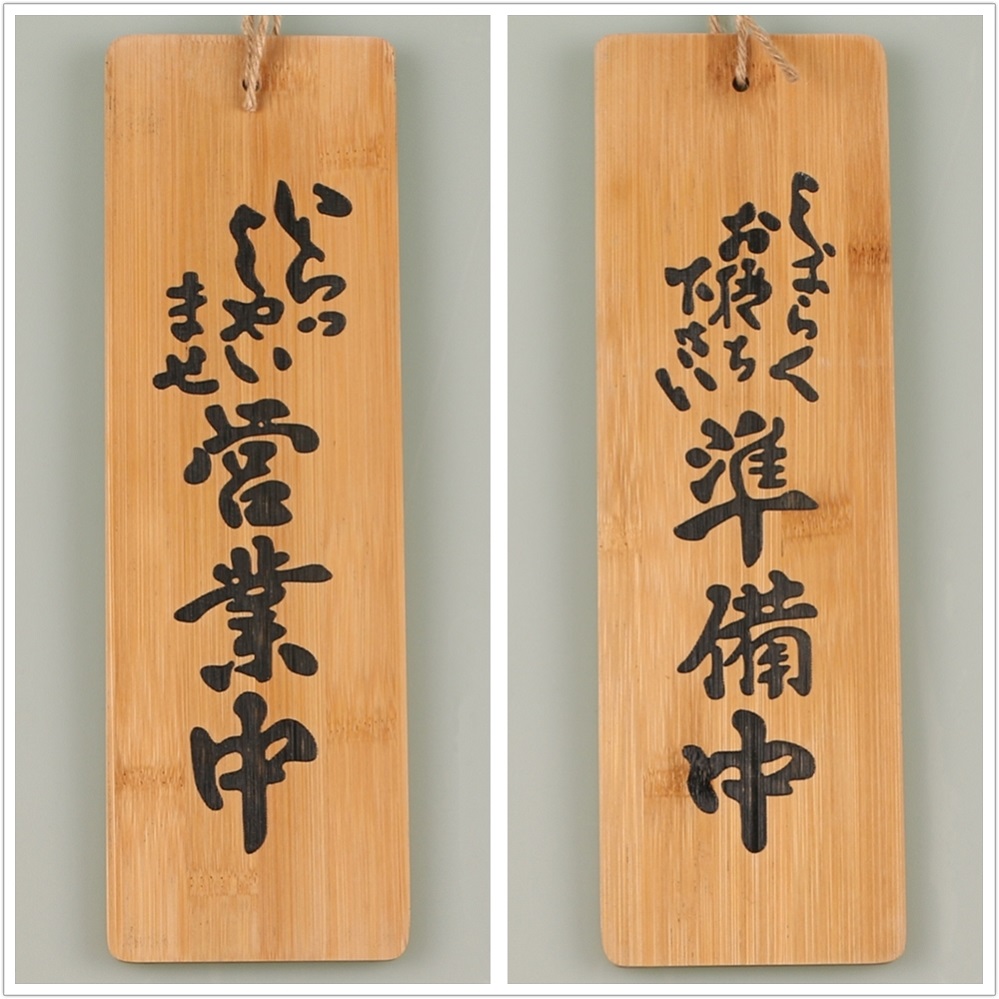 いらっ
しゃい
ませ
営業中
しばらく
お待ち
下さい
準備中